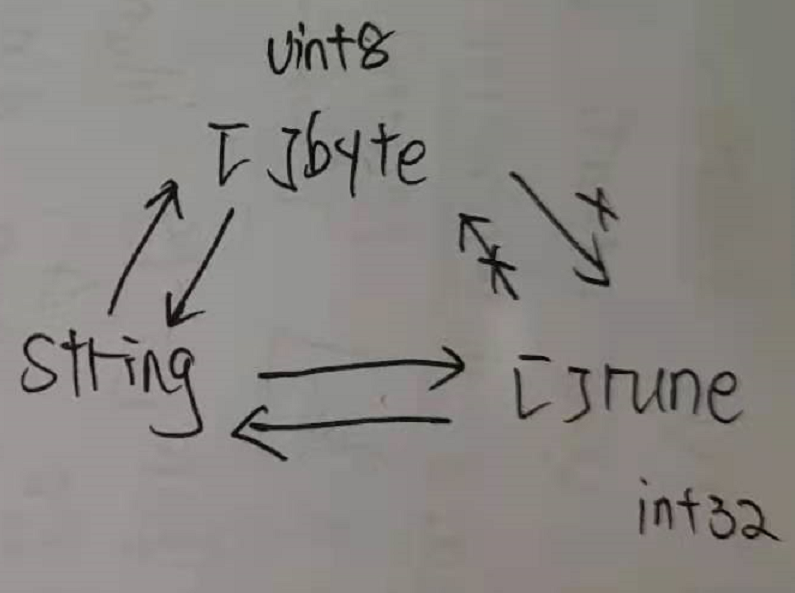 uint8
[]byte
string
[]rune
int32